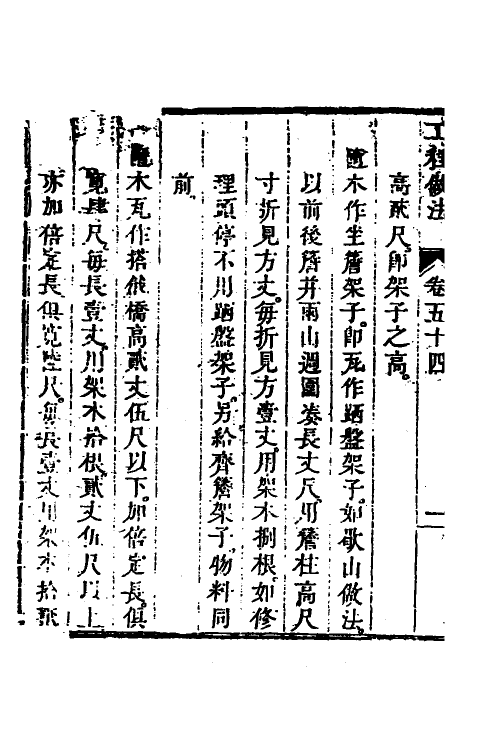 工程做法 卷五十四 二
高貳尺卽架子之高。
隨木作坐簷架子。卽瓦作踊盤架子。如歇山做法。
以前後簷幷兩山週圍湊長丈尺。用簷柱高尺
寸折見方丈。每折見方壹丈。用架木捌根。如修
理頭停不用踊盤架子。另給齊簷架子。物料同
前
隨木瓦作搭戧橋高貳丈伍尺以下。加倍定長。俱
寬肆尺。每長壹丈。用架木拾根。貳丈伍尺以上
亦加倍定長俱寬陸尺。每長壹丈用架木拾